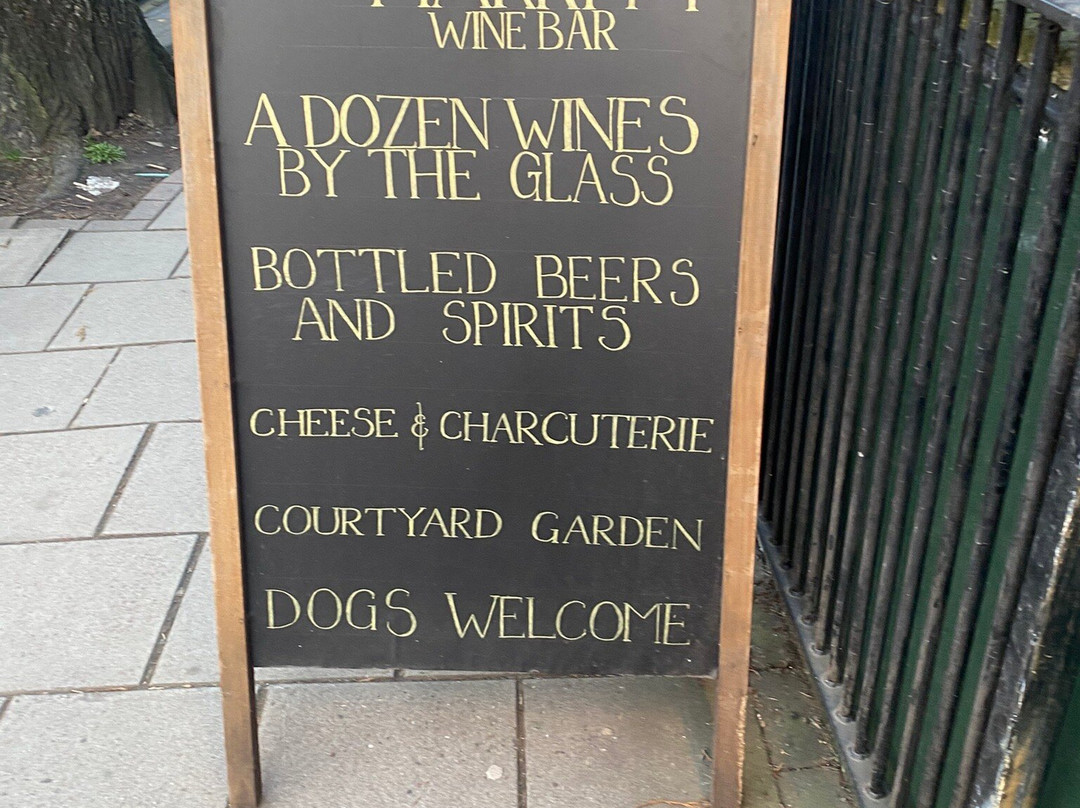 WINE BAR
A DOZEN WINES
BY THE GLASS
BOTTLED BEERS
AND SPIRITS
CHEESE & CHARCUTERIE
COURTYARD GARDEN
DOGS WELCOME